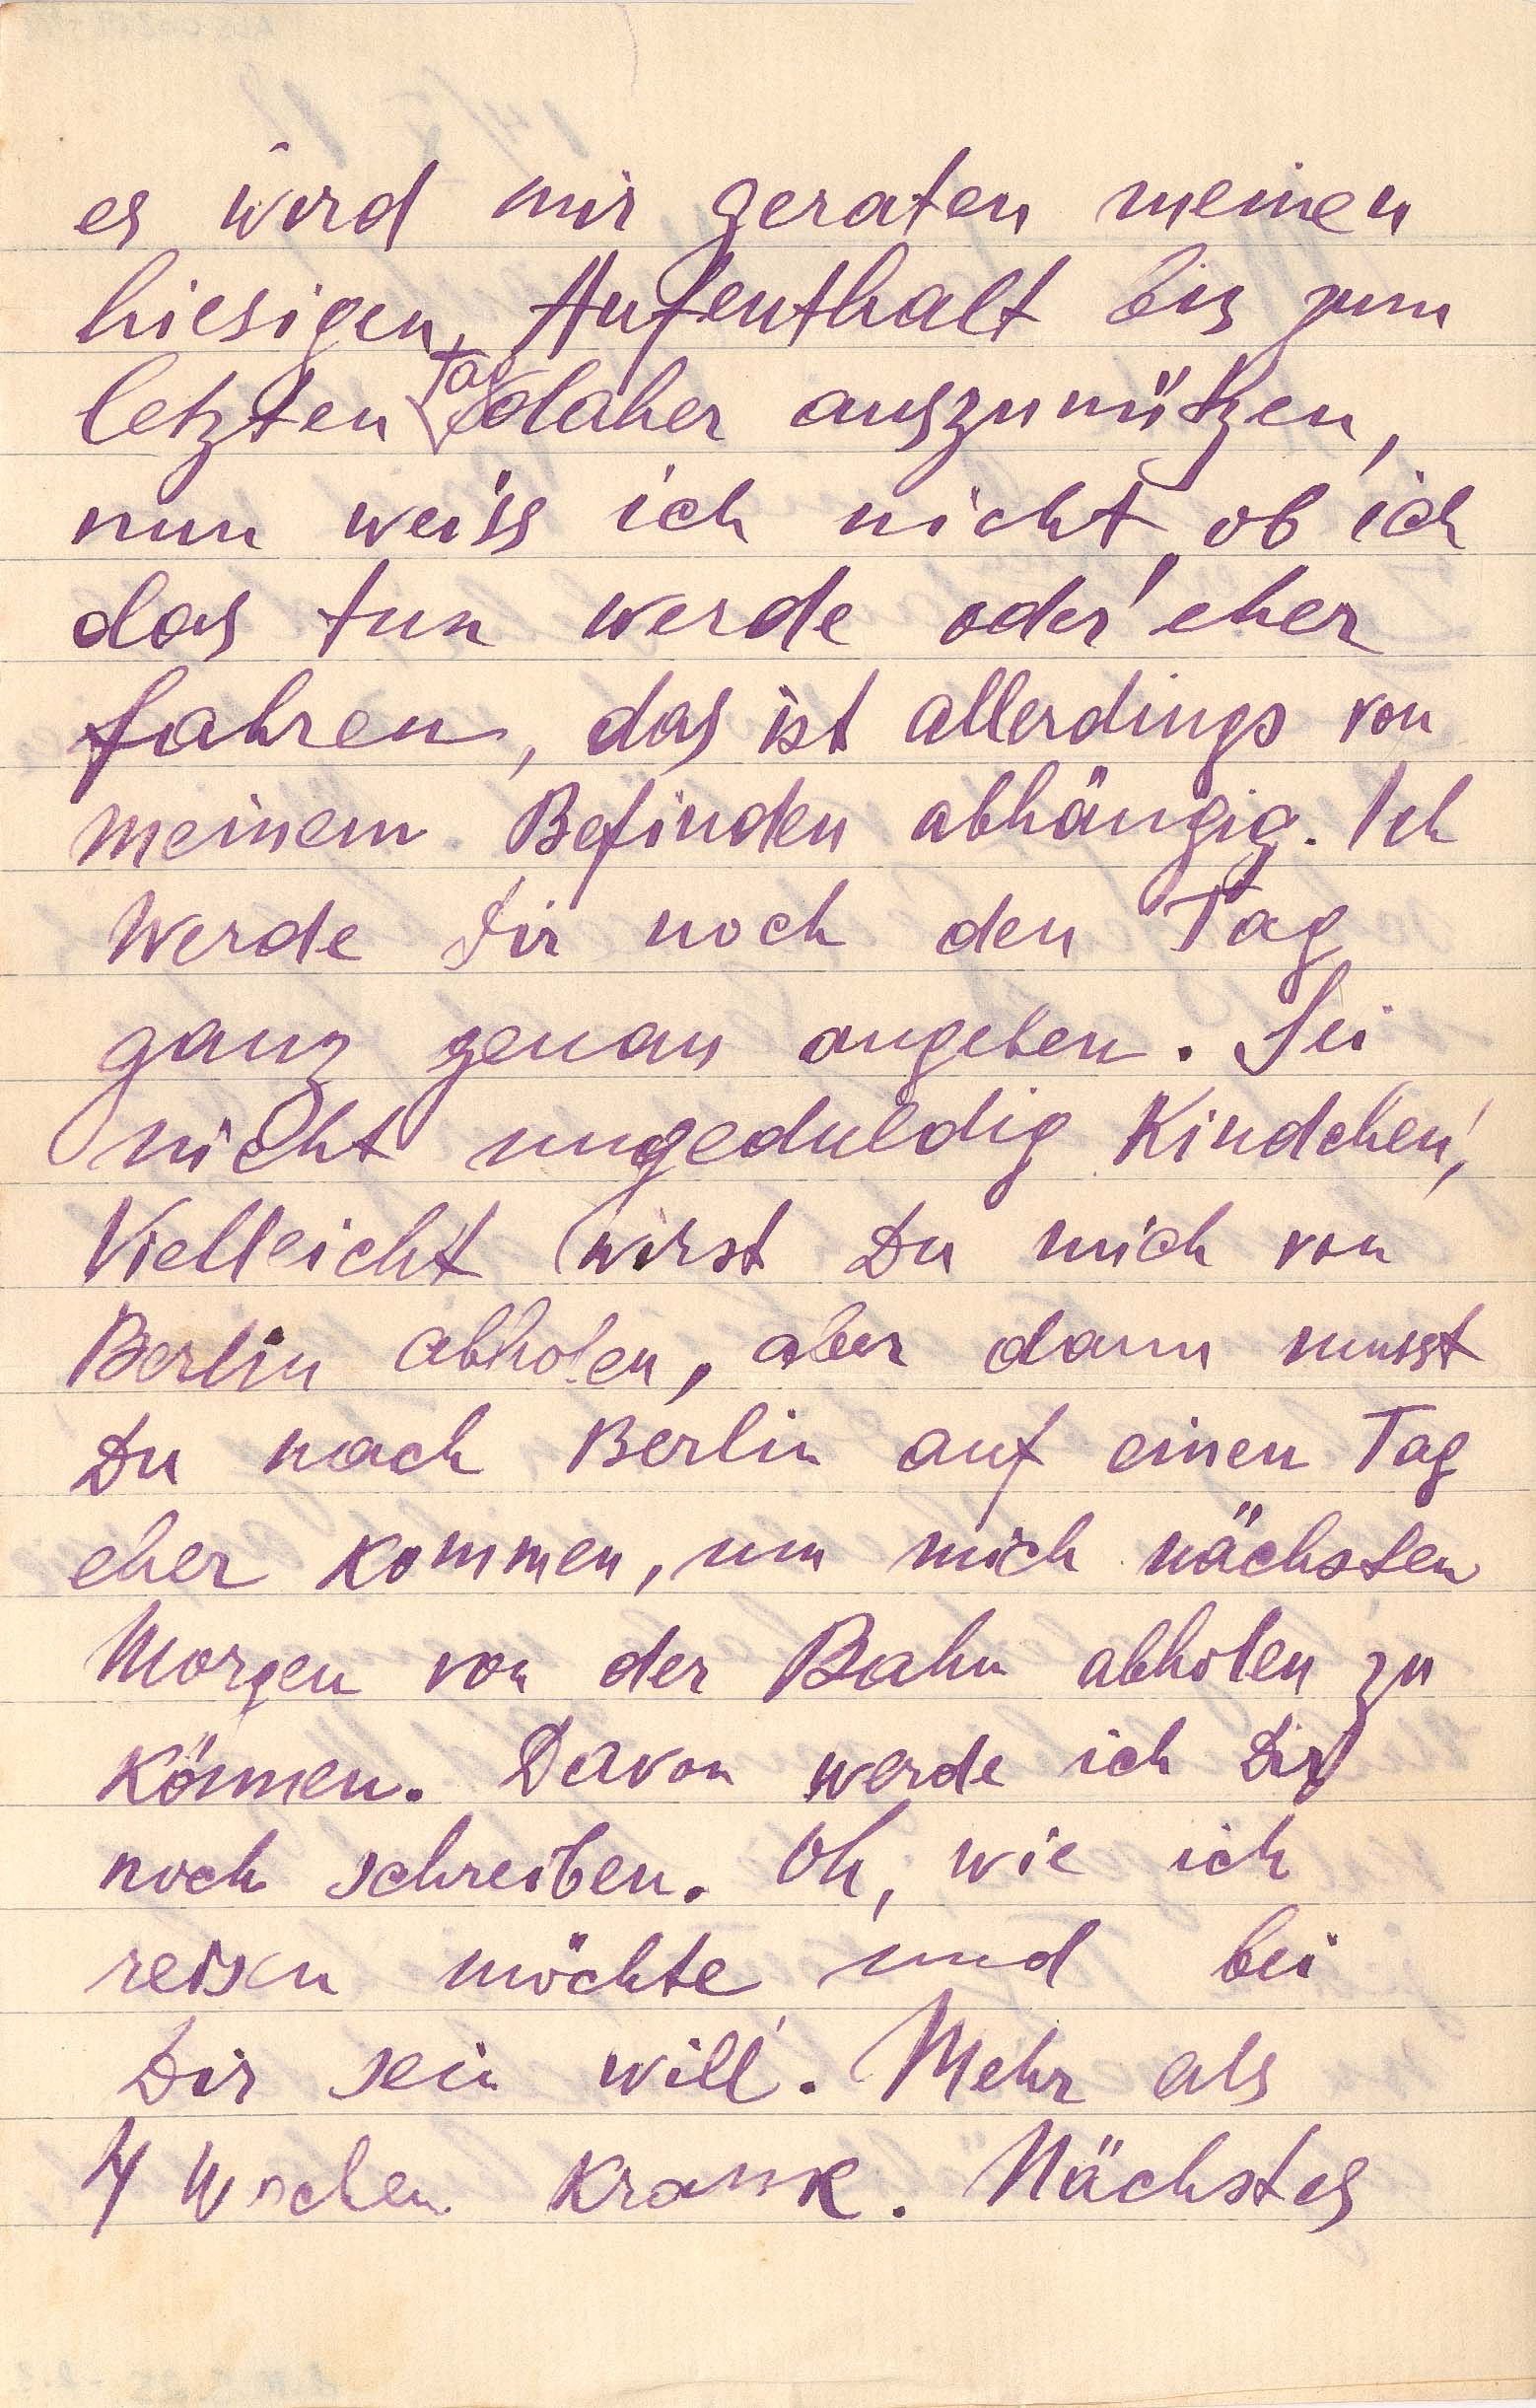 es wird mir geraten meinen
hiesigen Aufenthalt bis zum
letzten Tag daher auszunützen,
nun weiss ich nicht, ob ich
das tun werde oder eher
fahren, das ist allerdings von
meinem Befinden abhängig. Ich
werde Dir noch den Tag
ganz genau angeben. Sei
nicht ungeduldig Kindchen,
Vielleicht wirst Du mich von
Berlin abholen, aber dann musst
Du nach Berlin auf einen Tag
eher kommen, um mich nächsten
Morgen von der Bahn abholen zu
können. Davon werde ich Dir
noch schreiben. Oh, wie ich
reisen möchte und bei
Dir sein will. Mehr als
4 Wochen krank. Nächstes